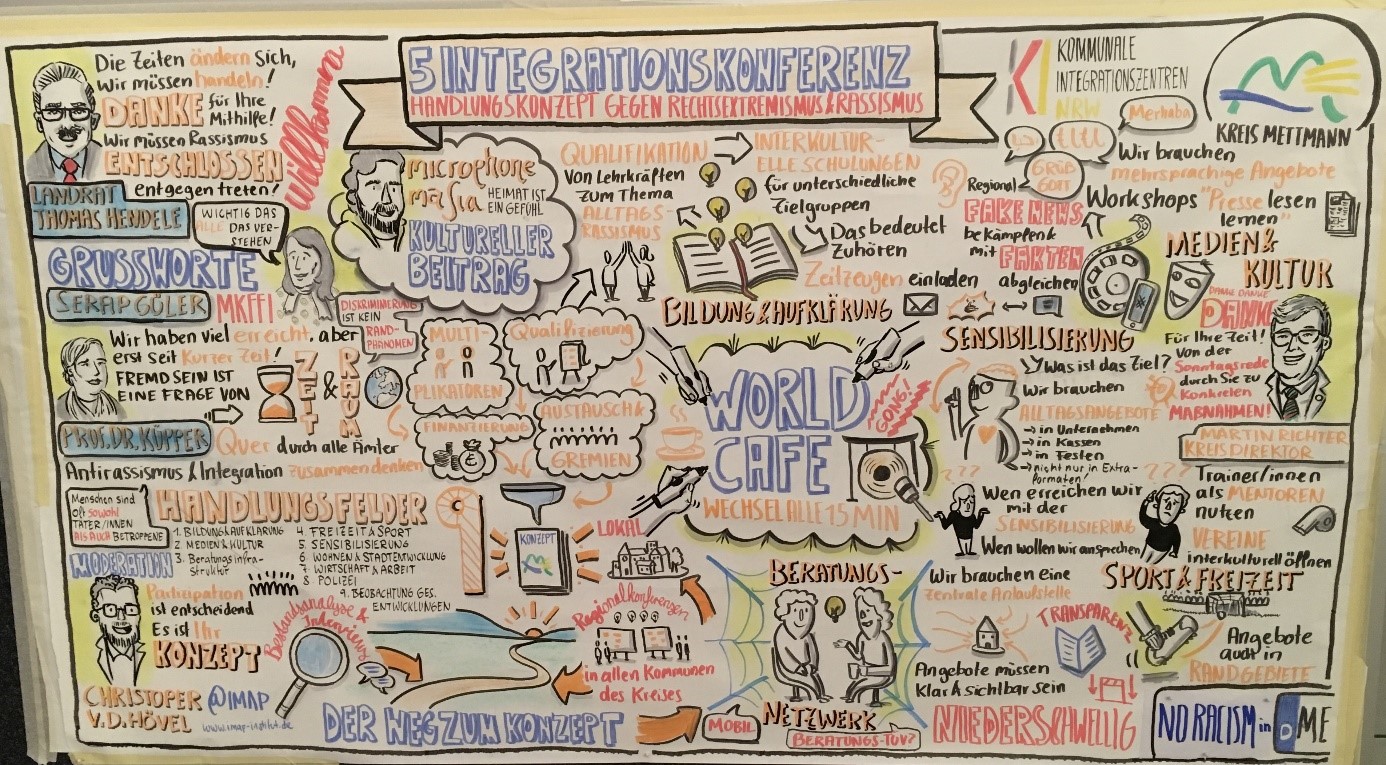 5 INTEGRATIONSKONFERENZ
HANDLUNGSKONZEPT GEGEN RECHTSEXTREMISMUS & RASSISMUS
Die Zeiten ändern sich,
wir müssen handeln!
DANKE für Ihre
Mithilfe!
Wir müssen Rassismus
ENTSCHLOSSEN
entgegen treten!
willkommen
LANDRAT
THOMAS HENDELE
WICHTIG DAS
ALLE DAS VER-
STEHEN
GRUSSWORTE
SERAP GÜLER
MKFFI
DISKRIMINIERUNG
IST KEIN
RAND-
PHÄNOMEN
Wir haben viel erreicht, aber
erst seit kurzer Zeit!
FREMD SEIN IST
EINE FRAGE VON
ZEIT & RAUM
PROF. DR. KÜPPER
Quer durch alle Ämter
Antirassismus & Integration zusammen denken
Menschen sind
oft sowohl
TÄTER/INNEN
ALS AUCH BETROFFENE
MODERATION
HANDLUNGSFELDER
1. BILDUNG & AUFKLÄRUNG
2 MEDIEN & KULTUR
3. Beratungsinfra-
struktur
4. FREIZEIT & SPORT
5 SENSIBILISIERUNG
6 WOHNEN & STADTENTWICKLUNG
7 WIRTSCHAFT & ARBEIT
8 POLIZEI
9. BEOBACHTUNG GES.
ENTWICKLUNGEN
Partizipation
ist entscheidend
Es ist Ihr
KONZEPT
CHRISTOPER
V.D. HÖVEL
@IMAP
www.imap-institut.de
Bestandsanalyse &
Interviews
DER WEG ZUM KONZEPT
microphone
mafia
HEIMAT IST
EIN GEFÜHL
KULTURELLER
BEITRAG
MULTI-
PLIKATOREN
Qualifizierung
FINANZIERUNG
AUSTAUSCH &
GREMIEN
KONZEPT
LOKAL
Regionalkonferenzen
in allen Kommunen
des Kreises
QUALIFIKATION
von Lehrkräften
zum Thema
ALLTAGS-
RASSISMUS
INTERKULTUR-
ELLE SCHULUNGEN
für unterschiedliche
Zielgruppen
Das bedeutet
Zuhören
Zeitzeugen einladen
BILDUNG & AUFKLÄRUNG
WORLD
CAFE
WECHSEL ALLE 15 MIN
GONG!
KI
KOMMUNALE
INTEGRATIONSZENTREN
NRW
KREIS METTMANN
Merhaba
GRÜß
GOTT
Wir brauchen
mehrsprachige Angebote
Workshops "Presse lesen
lernen"
Regional
FAKE NEWS
bekämpfen &
mit FAKTEN
abgleichen
MEDIEN &
KULTUR
DANKE DANKE
DANKE
Für Ihre Zeit!
Von der
Sonntagsrede
durch Sie zu
Konkreten
MAßNAHMEN!
MARTIN RICHTER
KREISDIREKTOR
SENSIBILISIERUNG
Was ist das Ziel?
Wir brauchen
ALLTAGSANGEBOTE
→ in Unternehmen
→ in Kassen
→ in Festen
→ nicht nur in Extra-
formaten!
???
Wen erreichen wir
mit der
SENSIBILISIERUNG
Wen wollen wir ansprechen
???
Trainer/innen
als MENTOREN
nutzen
VEREINE
interkulturell öffnen
SPORT & FREIZEIT
Angebote
auch in
RANDGEBIETE
BERATUNGS-
NETZWERK
MOBIL
BERATUNGS-TÜV?
Wir brauchen eine
zentrale Anlaufstelle
TRANSPARENZ
Angebote müssen
klar & sichtbar sein
NIEDERSCHWELLIG
NO RACISM in D ME